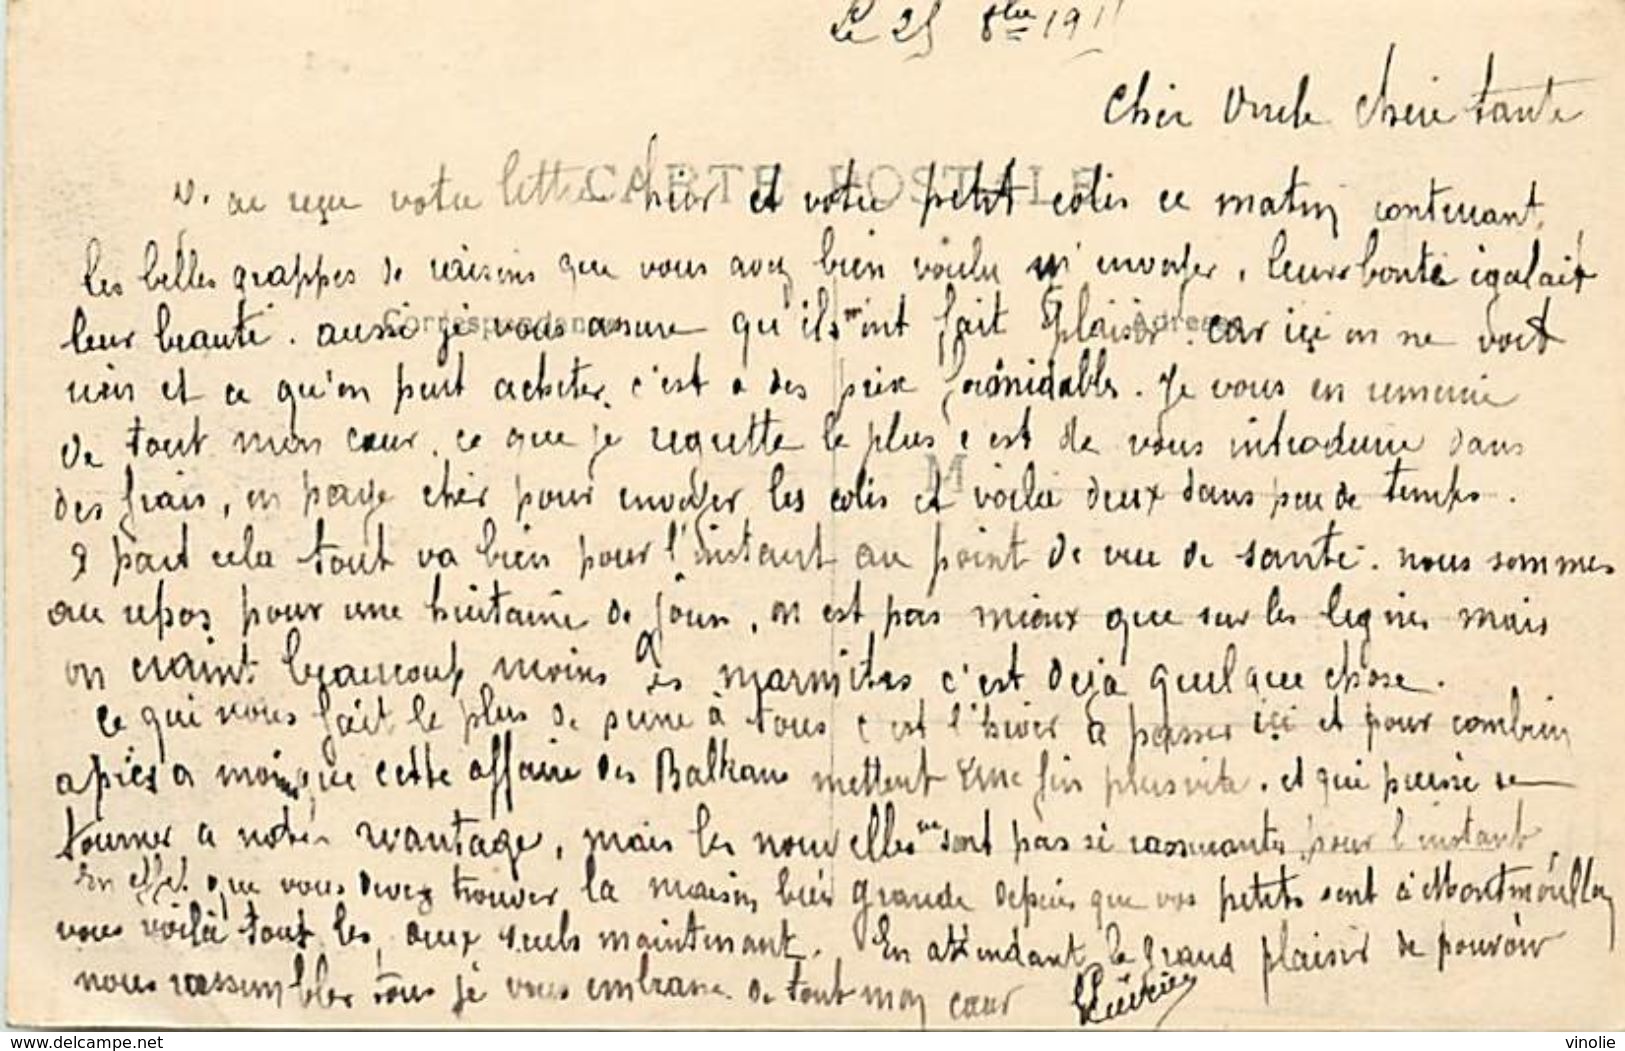 Le 25 8bre 191
Cher Oncle Chère tante
ai reçu votre lettre hier et votre petit colis ce matin contenant
CARTE POSTALE
les belles grappes de raisins que vous avez bien voulu m'envoyer, leur bonté égalait
Correspondance Adresse
leur beauté. aussi je vous assure qu'ils m'ont fait plaisir. car ici on ne voit
rien et ce qu'on peut acheter, c'est a des prix formidables. Je vous en remercie
de tout mon cœur. ce que je regrette le plus c'est de vous introduire dans
M
des frais, on paye cher pour envoyer les colis et voila deux dans peu de temps.
a part cela tout va bien pour l'instant au point de vue de santé. nous sommes
au repos pour une huitaine de jours, on est pas mieux que sur les lignes mais
on craint beaucoup moins les marmites c'est deja quelque chose.
Ce qui nous fait le plus de peine à tous c'est l'hiver à passer ici et pour combien
après a moins que cette affaire des Balkans mettent une fin plus vite. et qui puisse se
tourner a notre avantage, mais les nouvelles ne sont pas si rassurantes pour l'instant.
En effet que vous devez trouver la maison bien grande depuis que vos petits sont à
vous voilà tout les deux seuls maintenant. En attendant le grand plaisir de pouvoir
nous rassembler tous je vous embrasse de tout mon cœur
delcampe.net vinolie